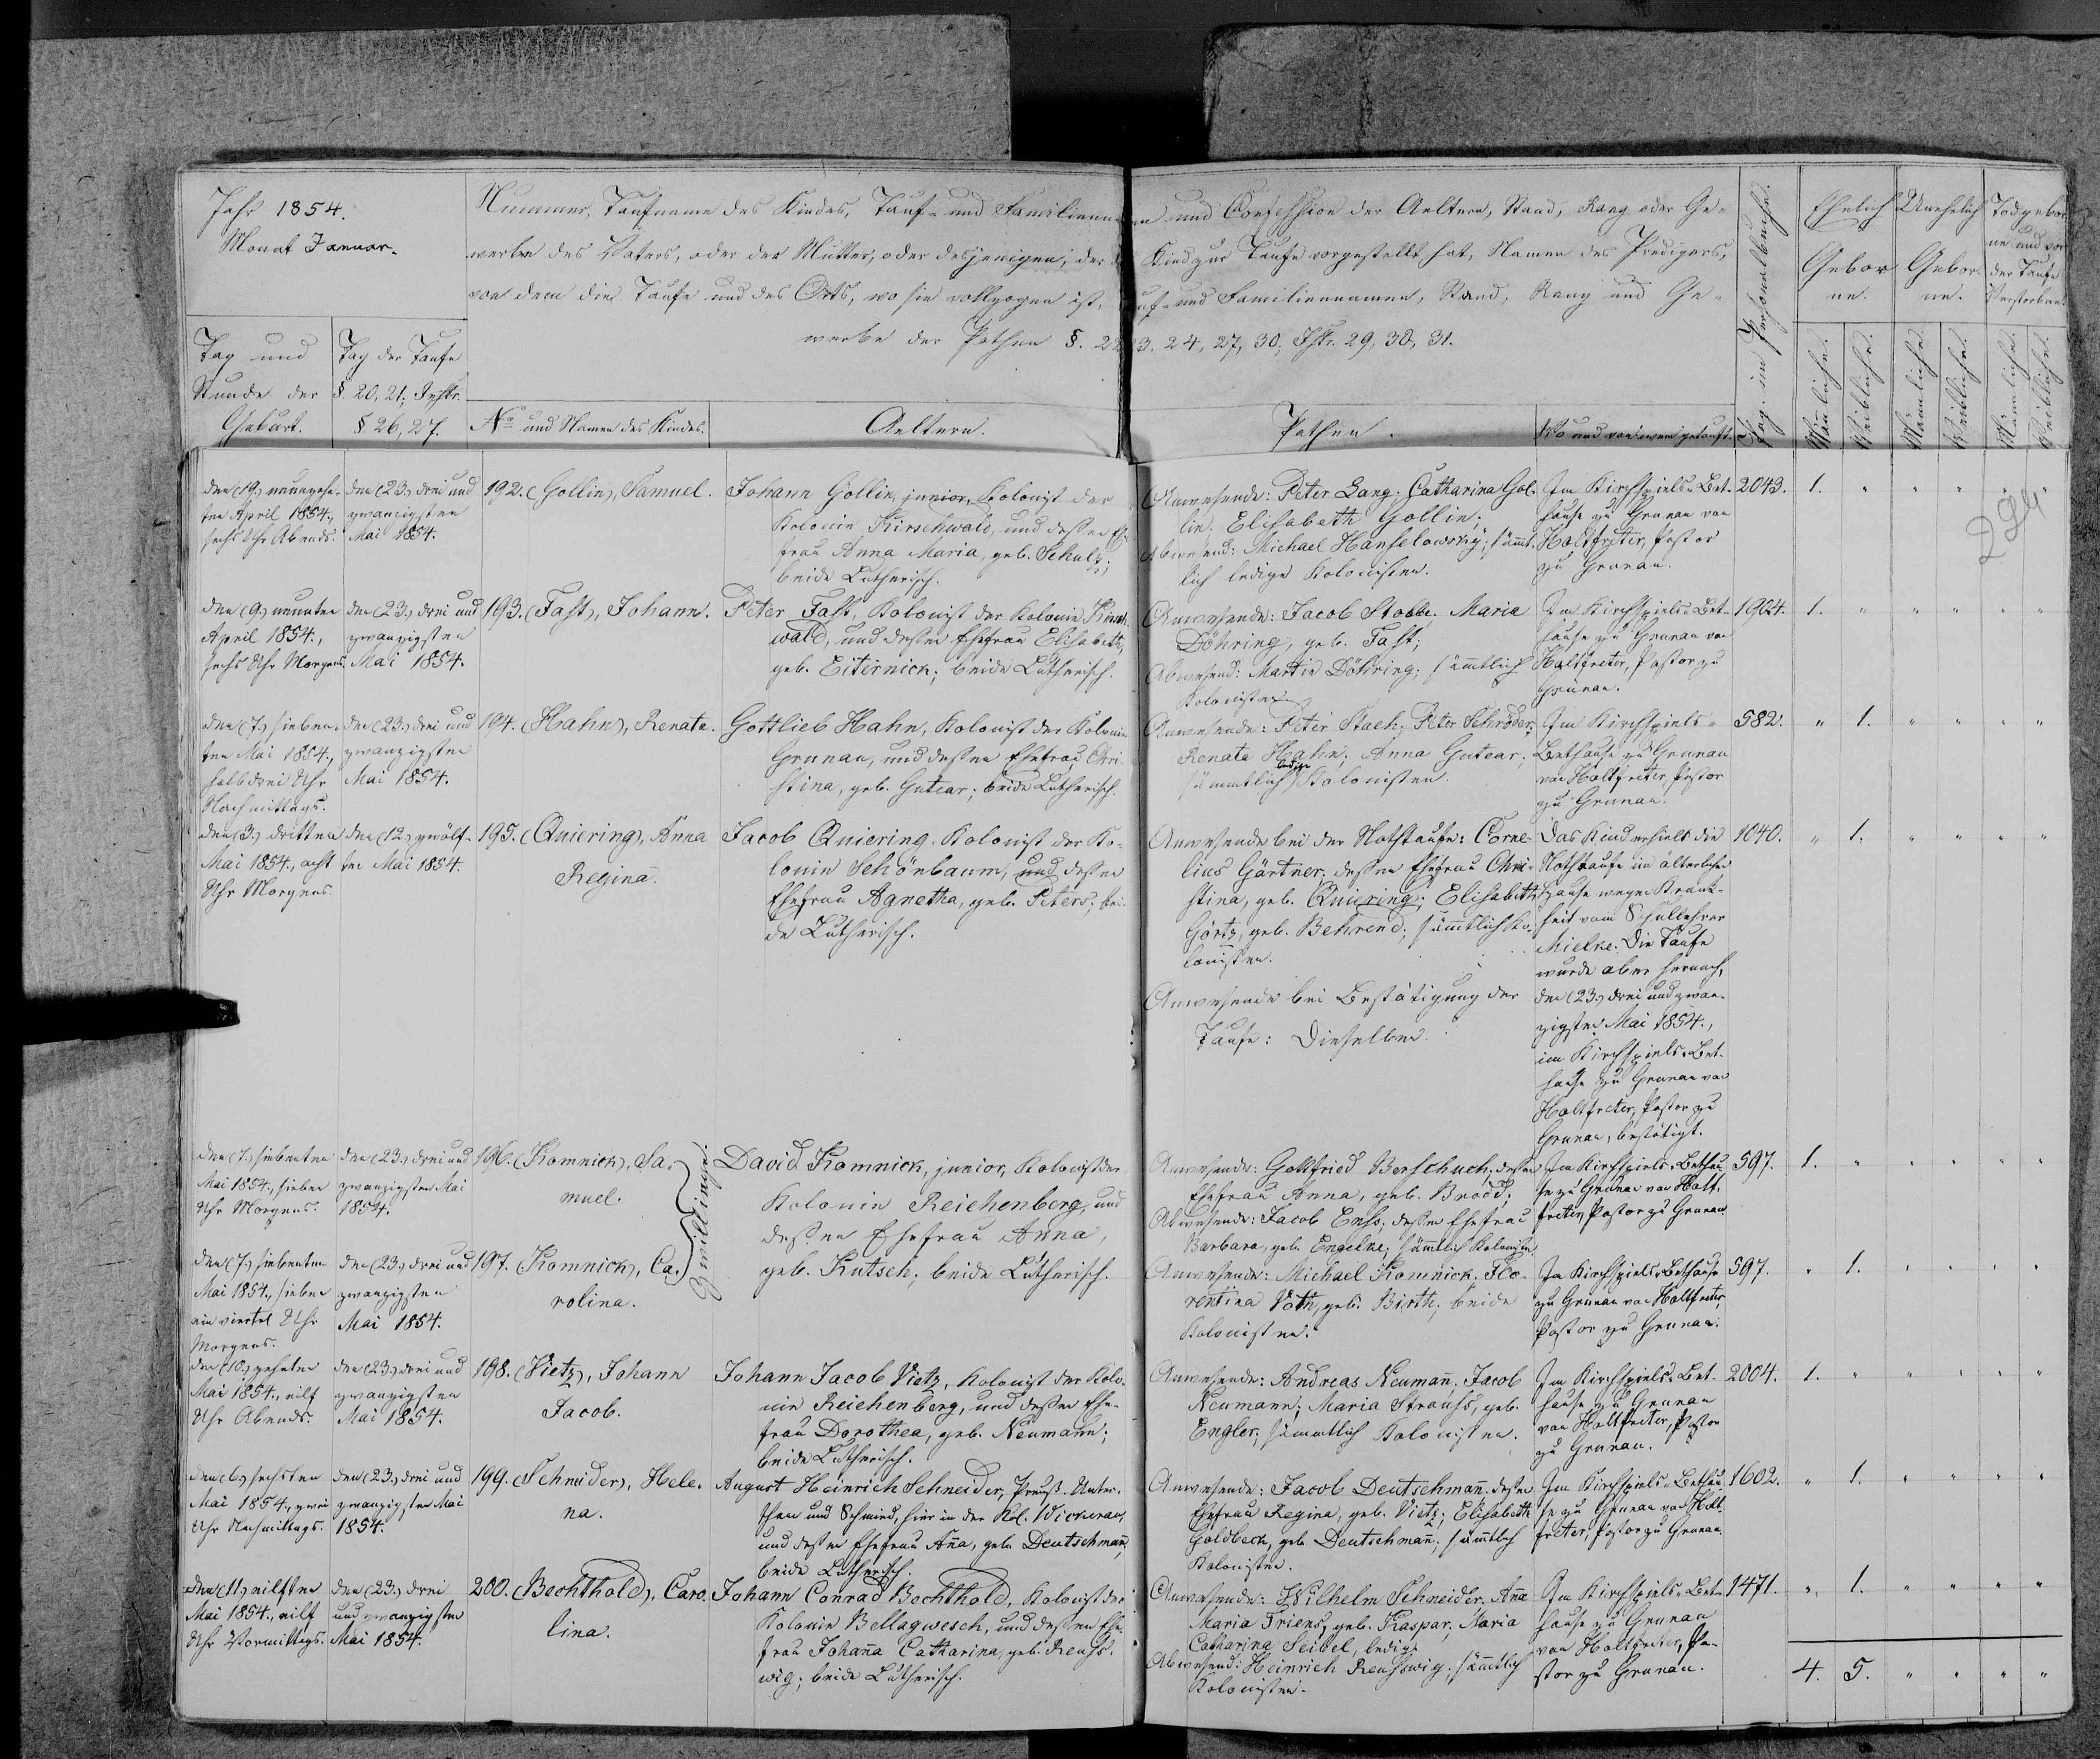 Jahr 1854.
Monat Januar.
Nummer, Taufname des Kindes, Tauf- und Familiennamen und Confession der Aeltern, Stand, Rang oder Ge-
werbe des Vaters, oder der Mutter, oder desjenigen, der das Kind zur Taufe vorgestellt hat, Namen des Predigers,
von dem die Taufe und des Orts, wo sie vollzogen ist, Tauf- und Familiennamen, Stand, Rang und Ge-
werbe der Pathen §. 22, 23, 24, 27, 30, Istr. 29, 30, 31.
Tag und
Stunde der
Geburt.
Tag der Taufe
§. 20, 21, Instr.
§. 26, 27.
No und Namen des Kindes.
Aeltern.
Pathen.
Wo und von wem getauft.
Pag. im Personalbuche.
Ehelich
Gebor
ne.
Unehelich
Gebor-
ne.
Todgebor
ne und vor
der Taufe
Verstorbene.
Männliche.
Weibliche.
Männliche.
Weibliche.
Männliche.
Weibliche.
224
den (19.) neunzehn-
ten April 1854.,
sechs Uhr Abends.
den (23.) drei und
zwanzigsten
Mai 1854.
192. (Gollin), Samuel.
Johann Gollin, junior, Kolonist der
Kolonie Kirschwald, und dessen Ehe
frau Anna Maria, geb. Schulz;
beide Lutherisch.
Anwesende: Peter Lang; Catharina Gol-
lin; Elisabeth Gollin;
Abwesend: Michael Hanselowsky; sämt-
lich ledige Kolonisten.
Im Kirchspiels-Bet-
hause zu Grunau von
Holtfreter, Pastor
zu Grunau.
2043.
1. " " " " "
den (9.) neunten
April 1854.,
sechs Uhr Morgens.
den (23.) drei und
zwanzigsten
Mai 1854.
193. (Fast), Johann.
Peter Fast, Kolonist der Kolonie Kirsch-
wald, und dessen Ehefrau Elisabeth,
geb. Eiternick; beide Lutherisch.
Anwesende: Jacob Stobbe; Maria
Döhring, geb. Fast;
Abwesend: Martin Döhring; sämmtlich
Kolonisten.
Im Kirchspiels-Bet-
hause zu Grunau von
Holtfreter, Pastor zu
Grunau.
1964.
1. " " " " "
den (7.) sieben-
ten Mai 1854.,
halb drei Uhr
Nachmittags.
den (23.) drei und
zwanzigsten
Mai 1854.
194. (Hahn), Renate.
Gottlieb Hahn, Kolonist der Kolonie
Grunau, und dessen Ehefrau Chri-
stina, geb. Gutear; beide Lutherisch.
Anwesende: Peter Stach; Peter Schröder;
Renata Hahn; Anna Gutear;
sämmtlich ledige Kolonisten.
Im Kirchspiels-
Bethause zu Grunau
von Holtfreter, Pastor
zu Grunau.
582.
" 1. " " " "
den (3.) dritten
Mai 1854., acht
Uhr Morgens.
den (12.) zwölf-
ten Mai 1854.
195. (Quiering), Anna
Regina.
Jacob Quiering, Kolonist der Ko-
lonie Schönbaum, und dessen
Ehefrau Agnetha, geb. Peters; bei-
de Lutherisch.
Anwesende bei der Nothtaufe: Corne-
lius Gärtner; dessen Ehefrau Chri-
stina, geb. Quiering; Elisabeth
Görtz, geb. Behrend; sämmtlich Ko-
lonisten.
Anwesende bei Bestätigung der
Taufe: Dieselben.
Das Kind erhielt die
Nothtaufe im älterlichen
Hause wegen Krank-
heit vom Schullehrer
Mielke. Die Taufe
wurde aber hernach,
den (23.) drei und zwan-
zigsten Mai 1854.,
im Kirchspiels-Bet-
hause zu Grunau von
Holtfreter, Pastor zu
Grunau, bestätigt.
1040.
" 1. " " " "
den (7.) siebenten
Mai 1854., sieben
Uhr Morgens.
den (23.) drei und
zwanzigsten Mai
1854.
196. (Komnick), Sa-
muel.
Zwillinge.
David Komnick, junior, Kolonist der
Kolonie Reichenberg, und
dessen Ehefrau Anna,
geb. Kutsch; beide Lutherisch.
Anwesende: Gottfried Berschuch; dessen
Ehefrau Anna, geb. Brodd;
Abwesende: Jacob Enss; dessen Ehefrau
Barbara, geb. Engelke; sämtlich Kolonisten.
Im Kirchspiels-Bethau-
se zu Grunau von Holt-
freter, Pastor zu Grunau.
597.
1. " " " " "
den (7.) siebenten
Mai 1854., sieben
ein viertel Uhr
Morgens.
den (23.) drei und
zwanzigsten
Mai 1854.
197. (Komnick), Ca-
rolina.
Anwesende: Michael Komnick; Flo-
rentina Voth, geb. Birth; beide
Kolonisten.
Im Kirchspiels-Bethause
zu Grunau von Holtfreter,
Pastor zu Grunau.
597.
" 1. " " " "
den (10.) zehnten
Mai 1854., eilf
Uhr Abends.
den (23.) drei und
zwanzigsten
Mai 1854.
198. (Vietz), Johann
Jacob.
Johann Jacob Vietz, Kolonist der Kolo-
nie Reichenberg, und dessen Ehe-
frau Dorothea, geb. Neumann;
beide Lutherisch.
Anwesende: Andreas Neumañ; Jacob
Neumann; Maria Strauhs, geb.
Engler; sämmtlich Kolonisten.
Im Kirchspiels-Bet-
hause zu Grunau
von Holtfreter, Pastor
zu Grunau.
2004.
1. " " " " "
den (6.) sechsten
Mai 1854., zwei
Uhr Nachmittags.
den (23.) drei und
zwanzigsten Mai
1854.
199. (Schneider), Hele-
na.
August Heinrich Schneider, Preuß. Unter-
than und Schmied, hier in der Kol. Wickerau,
und dessen Ehefrau Aña, geb. Deutschmañ,
beide Lutherisch.
Anwesende: Jacob Deutschmañ; dessen
Ehefrau Regina, geb. Vietz; Elisabeth
Goldbeck, geb. Deutschmañ; sämtlich
Kolonisten.
Im Kirchspiels-Bethau-
se zu Grunau von Holt-
freter, Pastor zu Grunau.
1602.
" 1. " " " "
den (11.) eilften
Mai 1854., eilf
Uhr Vormittags.
den (23.) drei
und zwanzigsten
Mai 1854.
200. (Bechthold), Caro-
lina.
Johann Conrad Bechthold, Kolonist der
Kolonie Bellagwesch, und dessen Ehe-
frau Johaña Catharina, geb. Reuhs-
wig; beide Lutherisch.
Anwesende: Wilhelm Schneider; Aña
Maria Triens, geb. Kaspar; Maria
Catharina Seibel, ledig;
Abwesend: Heinrich Reuhswig; sämtlich
Kolonisten.
Im Kirchspiels-Bet-
hause zu Grunau
von Holtfreter, Pa-
stor zu Grunau.
1471.
" 1. " " " "
4. 5. " " " "